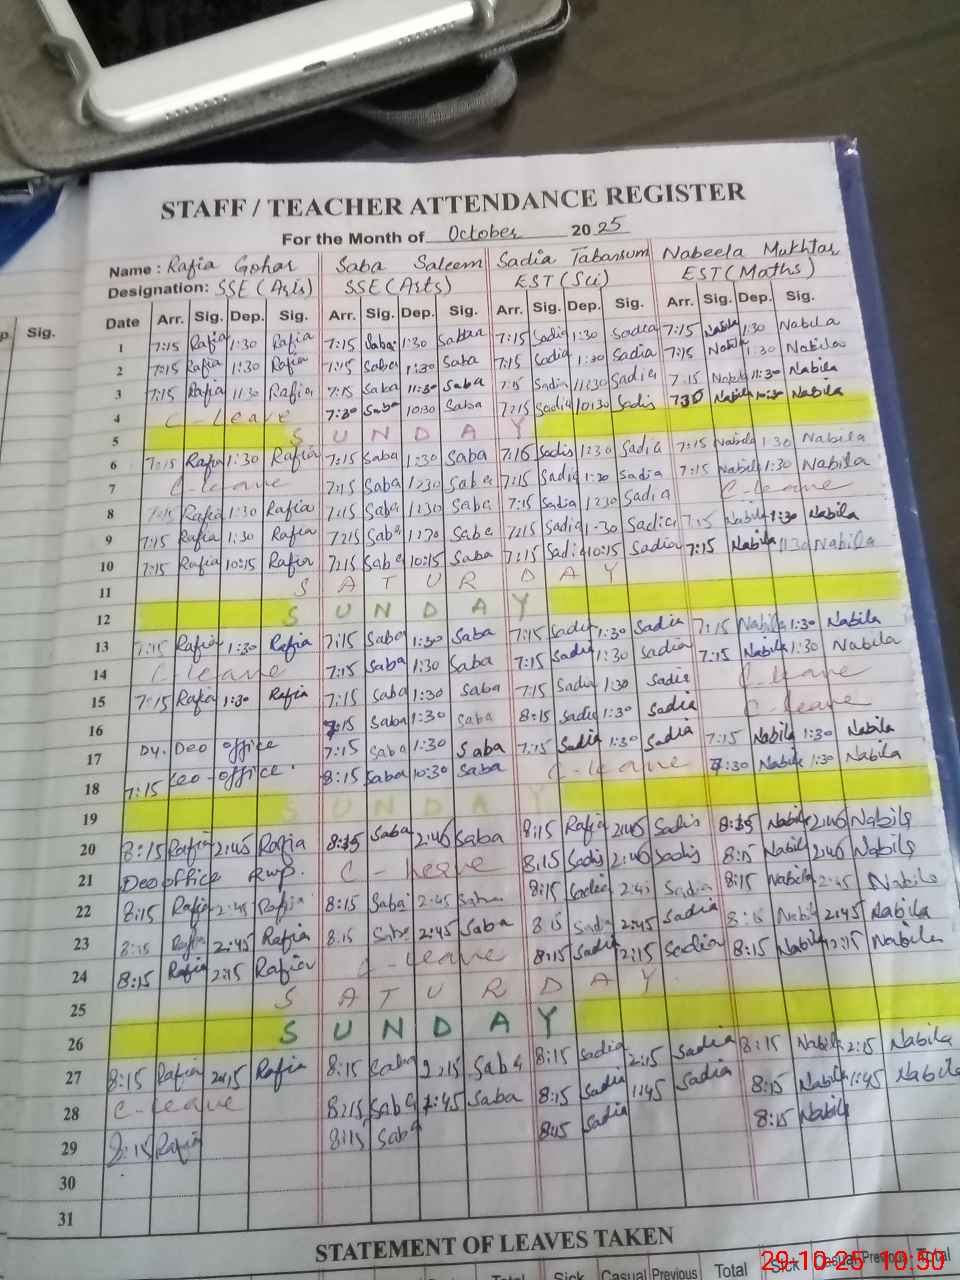 STAFF / TEACHER ATTENDANCE REGISTER
For the Month of October 2025
Name : Rafia Gohar Saba Saleem Sadia Tabassum Nabeela Mukhtar
Designation: SSE (Arts) SSE (Arts) EST (Sci) EST (Maths)
Sig.
Date Arr. Sig. Dep. Sig. Arr. Sig. Dep. Sig. Arr. Sig. Dep. Sig. Arr. Sig. Dep. Sig.
1 7:15 Rafia 1:30 Rafia 7:15 Saba 1:30 7:15 Sadia 1:30 Sadia 7:15 Nabila 1:30 Nabila
2 7:15 Rafia 1:30 Rafia 7:15 Saba 1:30 Saba 7:15 Sadia 1:30 Sadia 7:15 Nabila 1:30 Nabila
3 7:15 Rafia 11:30 Rafia 7:15 Saba 11:30 Saba 7:15 Sadia 11:30 Sadia 7:15 Nabila 11:30 Nabila
4 C-Leave 7:30 Saba 10:30 Saba 7:15 Sadia 10:30 Sadia 7:30 Nabila 10:30 Nabila
5 S U N D A Y
6 7:15 Rafia 1:30 Rafia 7:15 Saba 1:30 Saba 7:15 Sadia 1:30 Sadia 7:15 Nabila 1:30 Nabila
7 C-leave 7:15 Saba 1:30 Saba 7:15 Sadia 1:30 Sadia 7:15 Nabila 1:30 Nabila
8 7:15 Rafia 1:30 Rafia 7:15 Saba 1:30 Saba 7:15 Sadia 1:30 Sadia C-leave
9 7:15 Rafia 1:30 Rafia 7:15 Saba 1:30 Saba 7:15 Sadia 1:30 Sadia 7:15 Nabila 1:30 Nabila
10 7:15 Rafia 10:15 Rafia 7:15 Saba 10:15 Saba 7:15 Sadia 10:15 Sadia 7:15 Nabila 11:30 Nabila
11 S A T U R D A Y
12 S U N D A Y
13 7:15 Rafia 1:30 Rafia 7:15 Saba 1:30 Saba 7:15 Sadia 1:30 Sadia 7:15 Nabila 1:30 Nabila
14 C-leave 7:15 Saba 1:30 Saba 7:15 Sadia 1:30 Sadia 7:15 Nabila 1:30 Nabila
15 7:15 Rafia 1:30 Rafia 7:15 Saba 1:30 Saba 7:15 Sadia 1:30 Sadia C-leave
16 7:15 Saba 1:30 Saba 8:15 Sadia 1:30 Sadia C-leave
17 Dy. Deo office 7:15 Saba 1:30 Saba 7:15 Sadia 1:30 Sadia 7:15 Nabila 1:30 Nabila
18 7:15 Ceo-office. 8:15 Saba 10:30 Saba C-leave 7:30 Nabila 1:30 Nabila
19 S U N D A Y
20 8:15 Rafia 2:45 Rafia 8:15 Saba 2:45 Saba 8:15 Rafia 2:45 Sadia 8:15 Nabila 2:45 Nabila
21 Deo office Rwp. C-leave 8:15 Sadia 2:45 Sadia 8:15 Nabila 2:45 Nabila
22 8:15 Rafia 2:45 Rafia 8:15 Saba 2:45 Saba 8:15 Sadia 2:45 Sadia 8:15 Nabila 2:45 Nabila
23 8:15 Rafia 2:45 Rafia 8:15 Saba 2:45 Saba 8:15 Sadia 2:45 Sadia 8:15 Nabila 2:45 Nabila
24 8:15 Rafia 2:15 Rafia C-leave 8:15 Sadia 2:15 Sadia 8:15 Nabila 12:15 Nabila
25 S A T U R D A Y
26 S U N D A Y
27 8:15 Rafia 2:15 Rafia 8:15 Saba 2:15 Saba 8:15 Sadia 2:15 Sadia 8:15 Nabila 2:15 Nabila
28 C-leave 8:15 Saba 1:45 Saba 8:15 Sadia 1:45 Sadia 8:15 Nabila 1:45 Nabila
29 8:15 Rafia 8:15 Saba 8:15 Sadia 8:15 Nabila
30
31
STATEMENT OF LEAVES TAKEN
Sick Casual Previous Total Sick Casual Previous Total
29-10-25 10:50